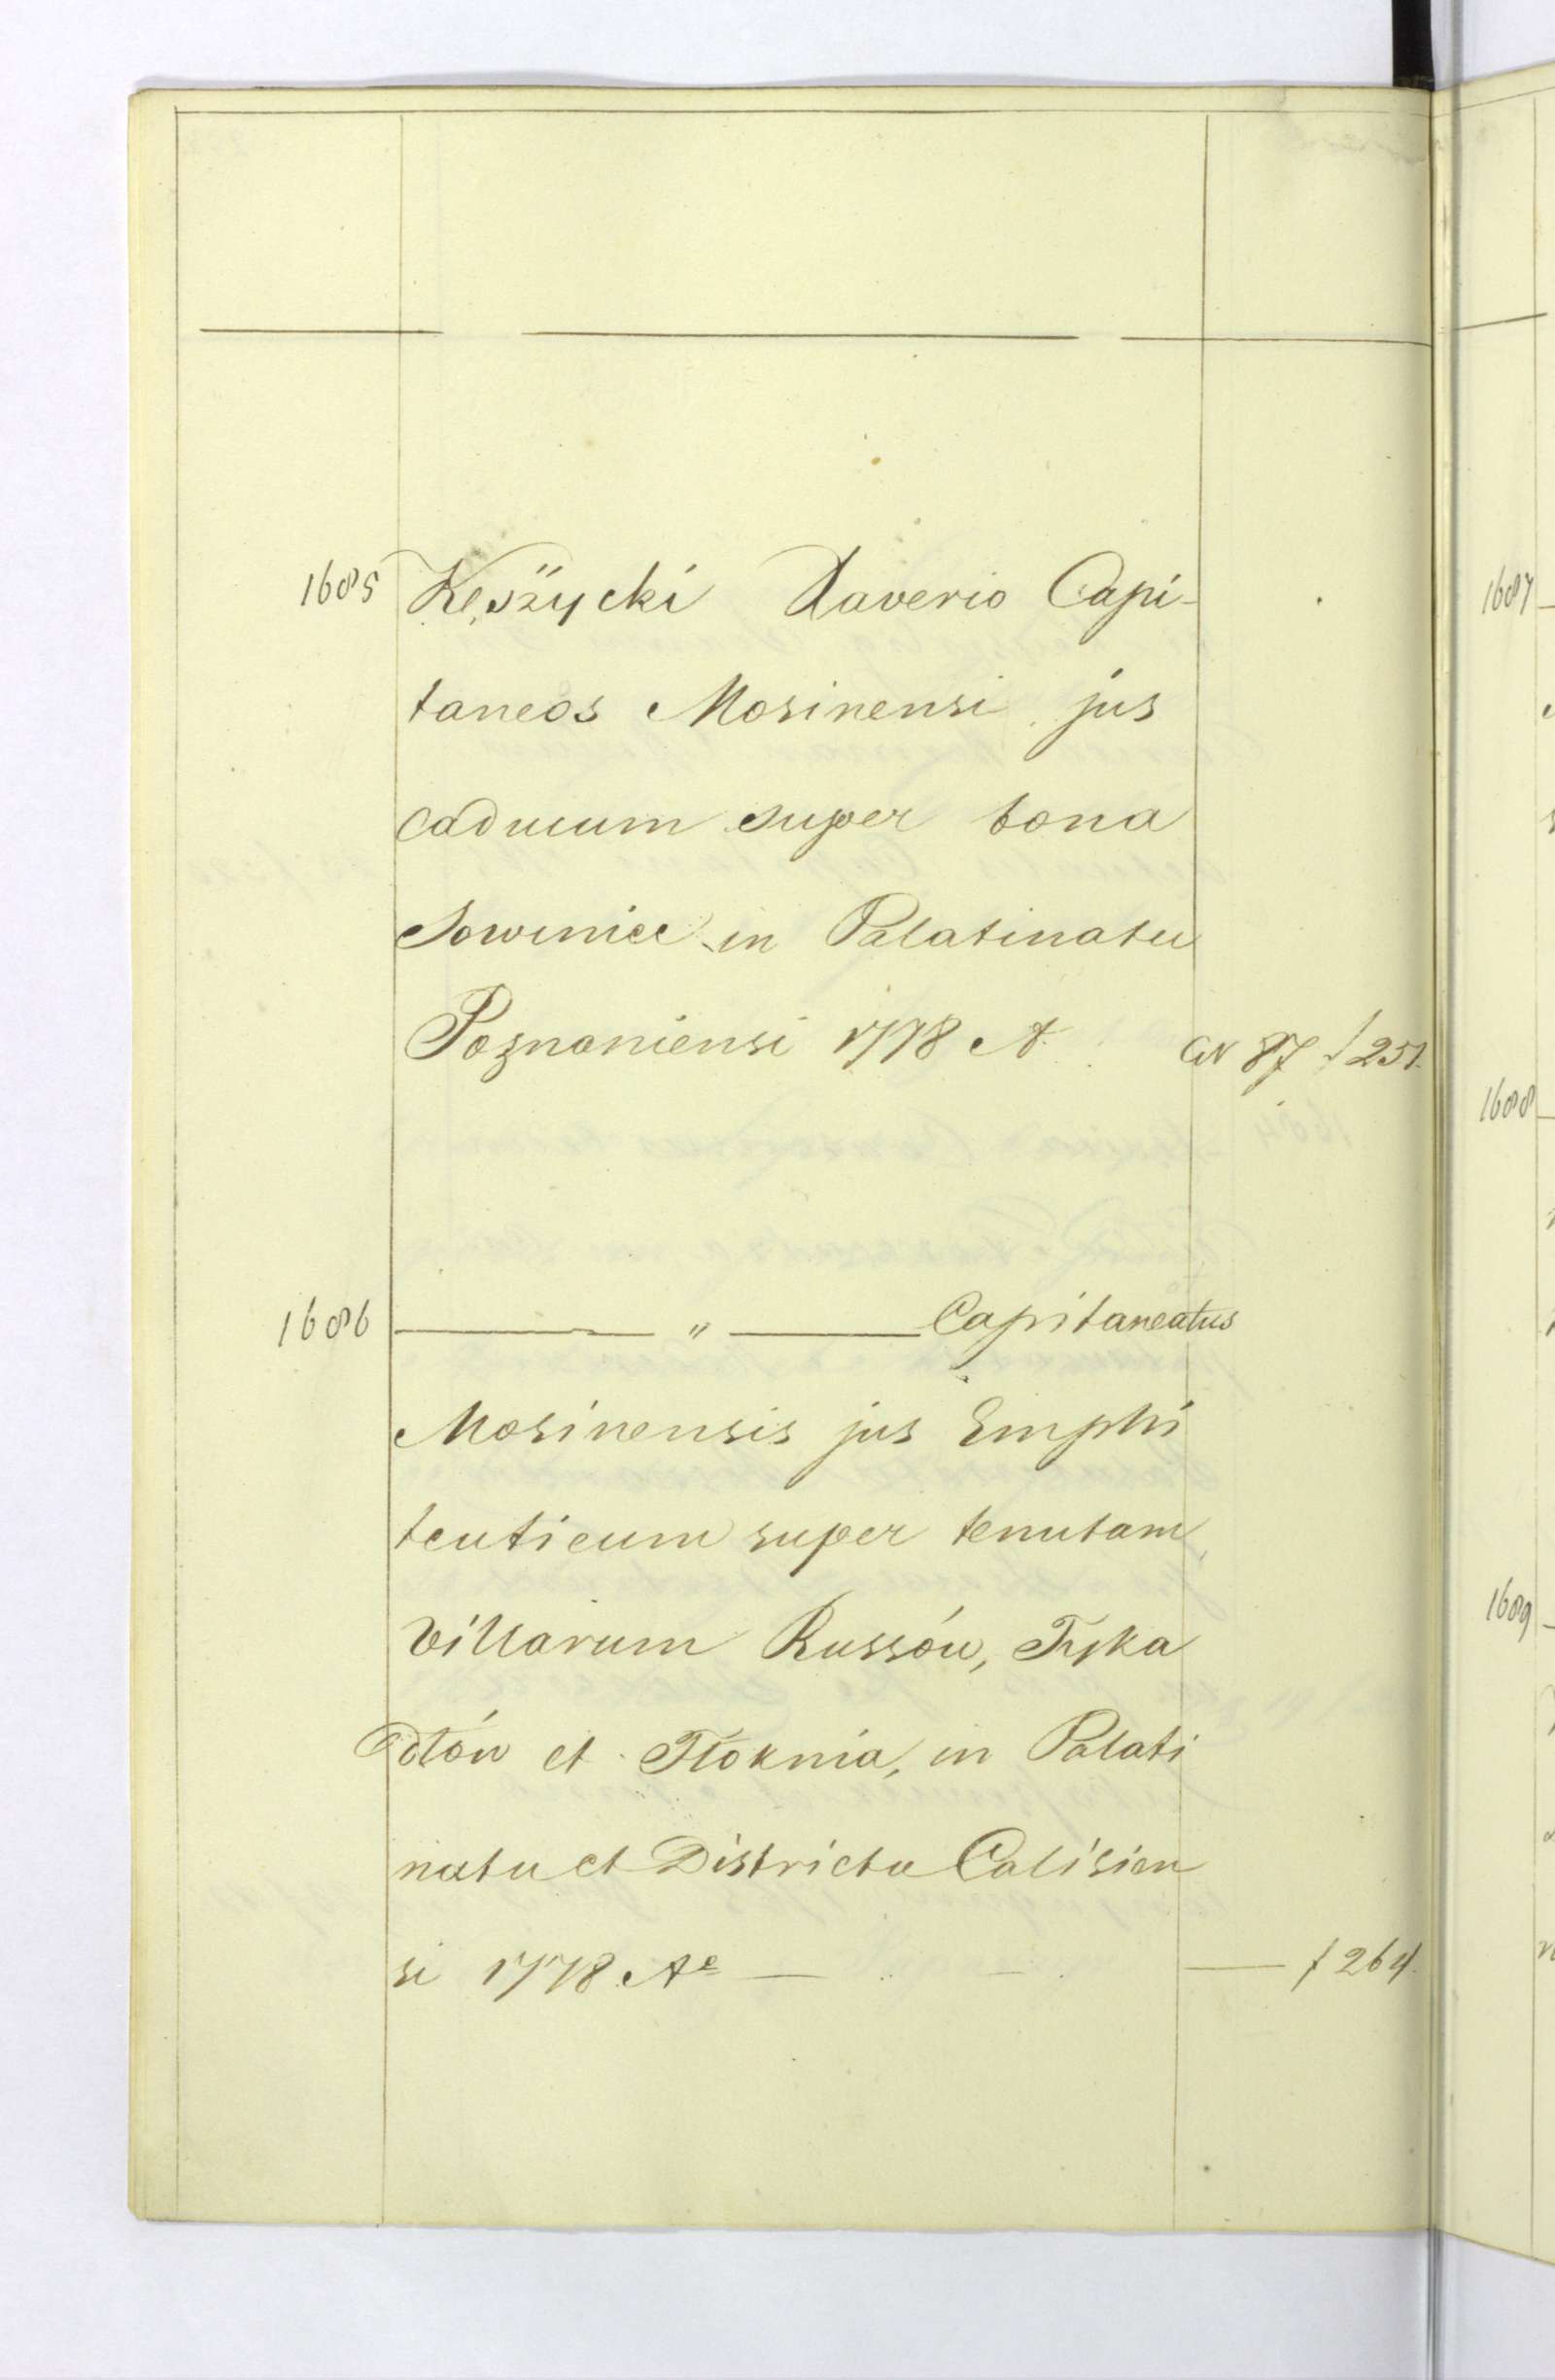 1685 Kęszycki Xaverio Capi-
taneos Mosinensi jus
caducum super bona
Sowiniec in Palatinatu
Poznaniensi 1778 A. CN 87 f 251.
1686 — " — Capitaneatus
Mosinensis jus Emphi
teuticum super tenutam
villarum Russów, Tyka
dłów et Tłoknia, in Palati
natu et Districtu Calisien
si 1778 Ae — — — f 264.
1687
1688
1689